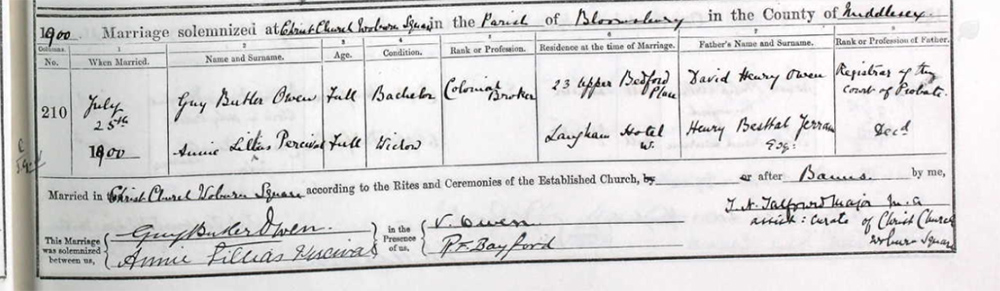 1900 Marriage solemnized at Christ Church Woburn Square in the Parish of Bloomsbury in the County of Middlesex
Columns. 1 2 3 4 5 6 7 8
No. When Married. Name and Surname. Age. Condition. Rank or Profession. Residence at the time of Marriage. Father's Name and Surname. Rank or Profession of Father.
210 July 25th 1900
Guy Butler Owen Full Bachelor Colonial Broker 23 Upper Bedford Place David Henry Owen Registrar of the Court of Probate
Annie Lillias Percival Full Widow Langham Hotel W. Henry Jerram Esq: Decd
Married in Christ Church Woburn Square according to the Rites and Ceremonies of the Established Church, by or after Banns. by me,
This Marriage was solemnized between us,
Guy Butler Owen.
Annie Lillias Percival
in the Presence of us,
V. Owen
R F Bayford
T. N. Talfourd Major M.A
assist: curate of Christ Church
Woburn Square